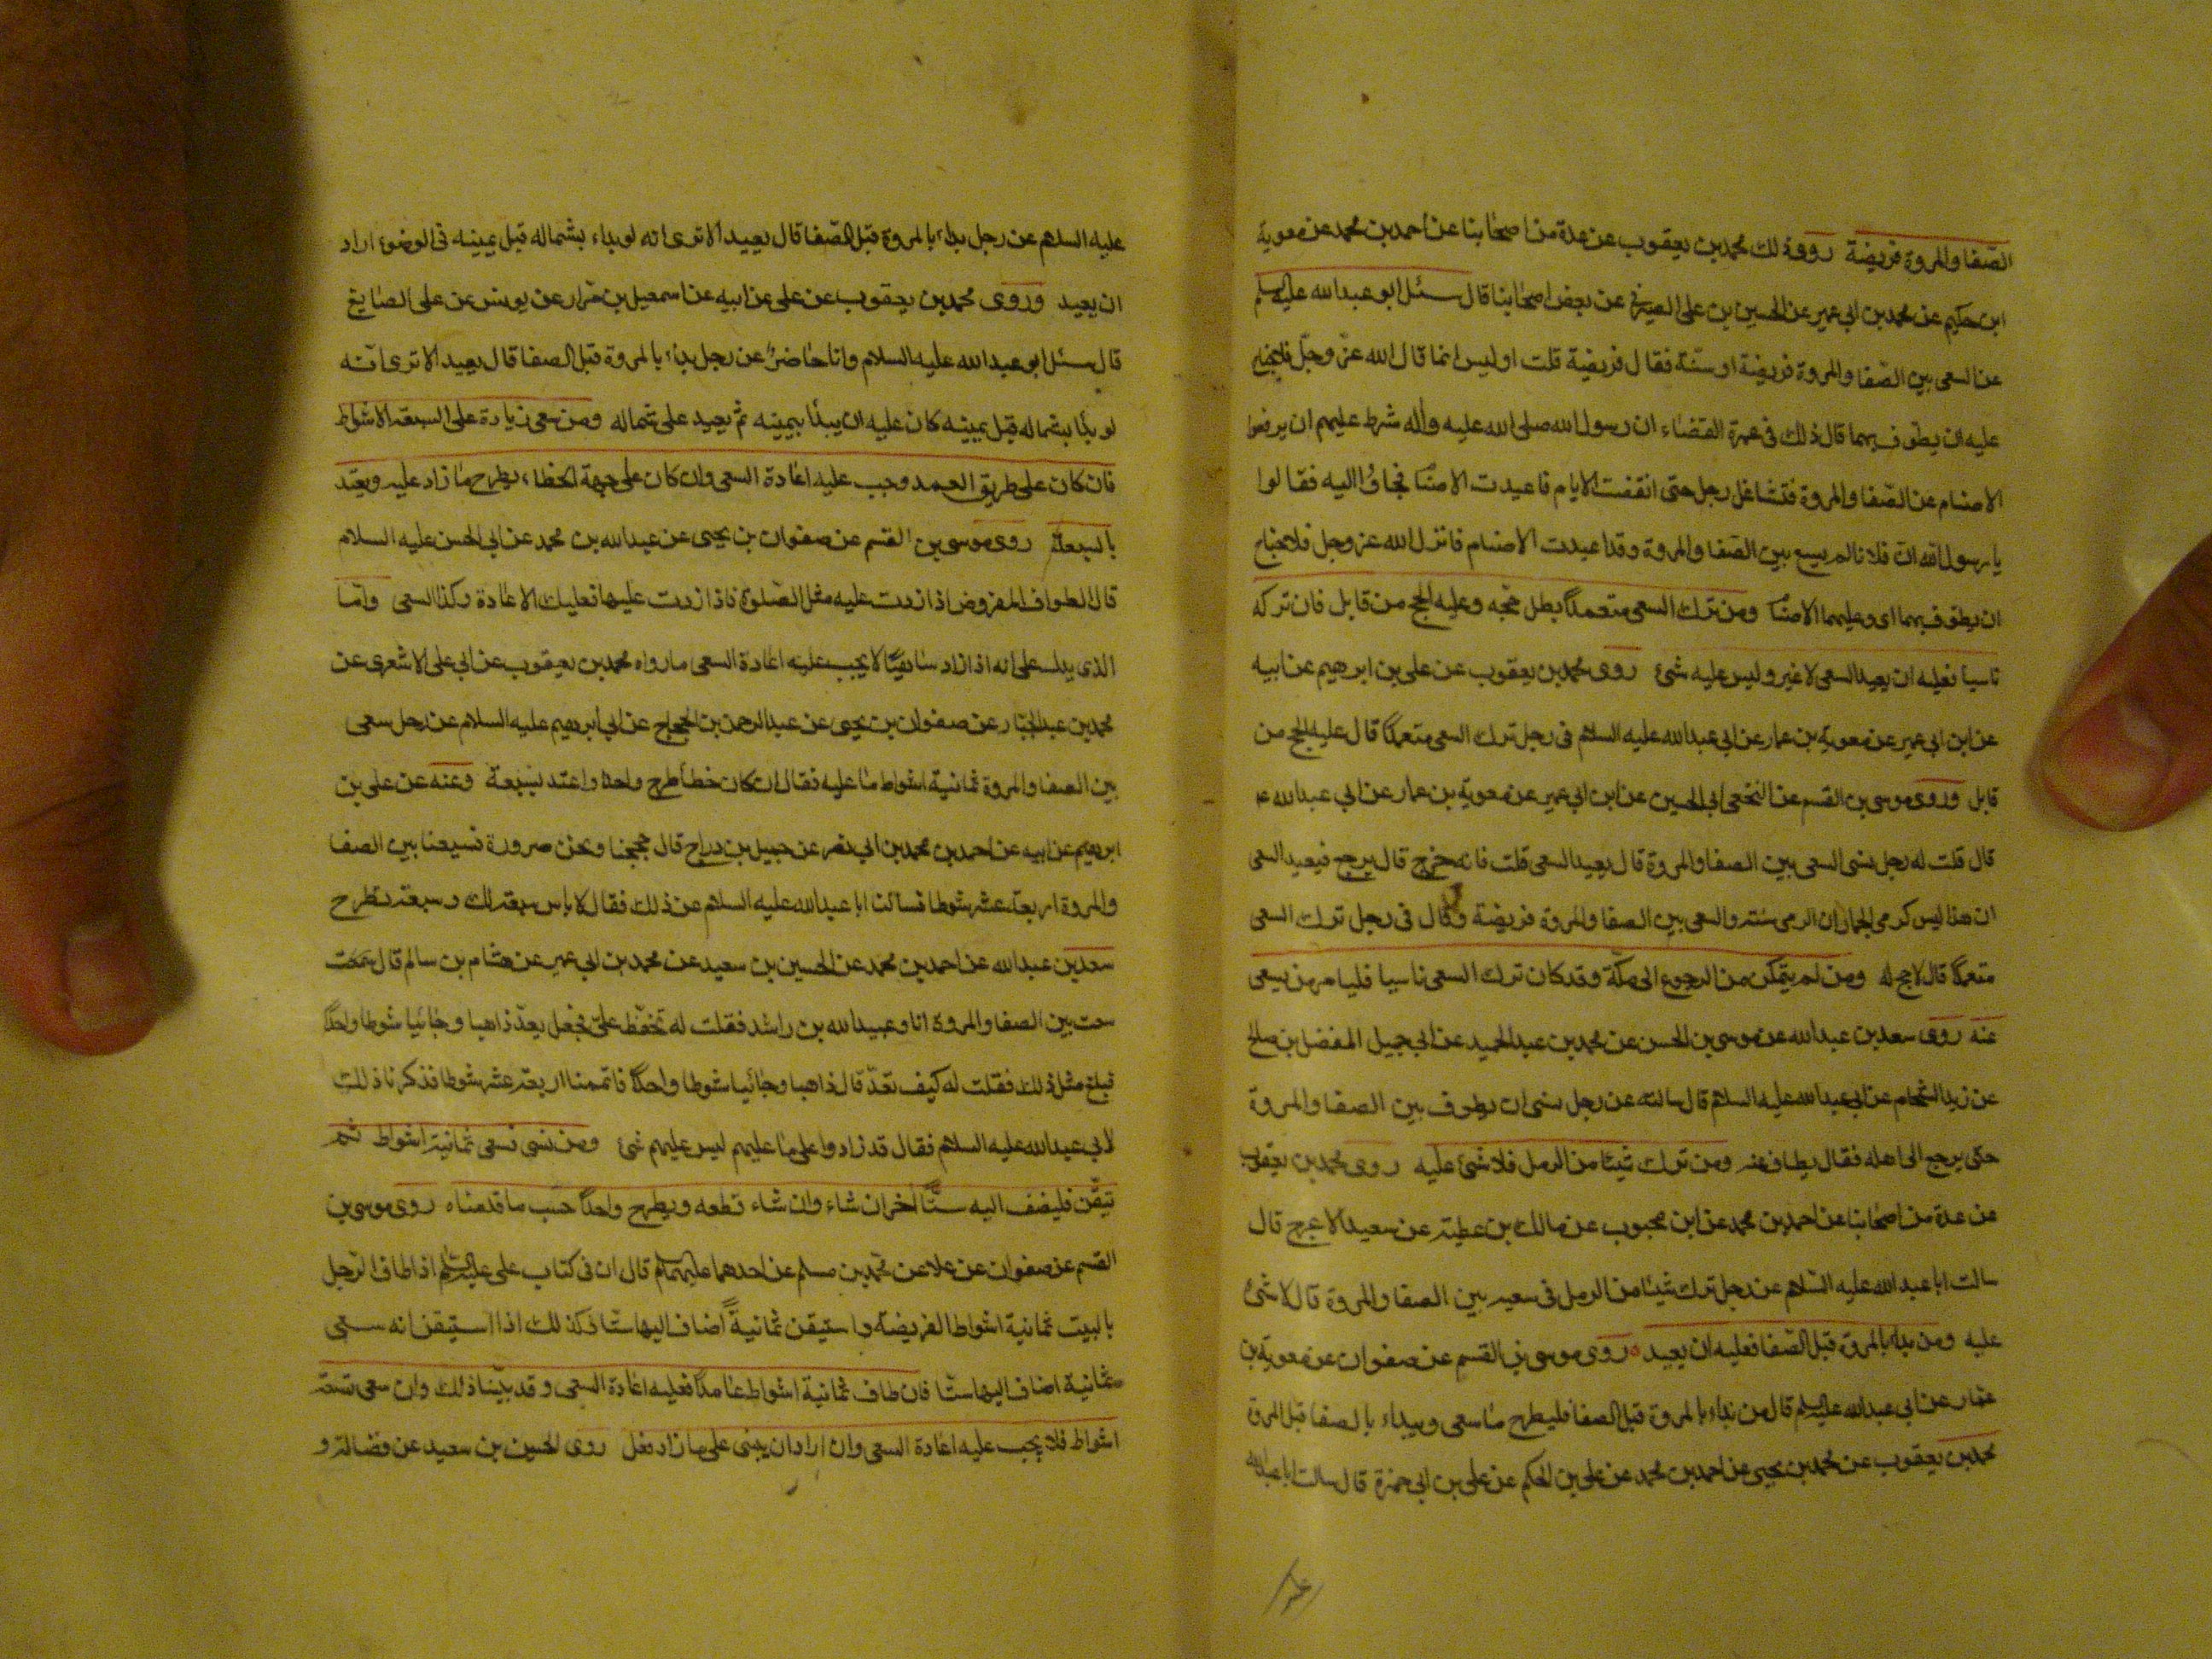 الصفا والمروة فريضة روى ذلك محمد بن يعقوب عن عدة من اصحابنا عن احمد بن محمد عن معوية
ابن حكيم عن محمد بن ابي عمير عن الحسين بن علي الصيرفي عن بعض اصحابنا قال سئل ابو عبد الله عليه السلم
عن السعى بين الصفا والمروة فريضة او سنة فقال فريضة قلت او ليس انما قال الله عز وجل فلا جناح
عليه ان يطوف بهما قال ذلك فى عمرة القضاء ان رسول الله صلى الله عليه واله شرط عليهم ان يرفعوا
الاصنام عن الصفا والمروة فتشاغل رجل حتى انقضت الايام فاعيدت الاصنام فجاؤا اليه فقالوا
يا رسول الله ان فلانا لم يسع بين الصفا والمروة وقد اعيدت الاصنام فانزل الله عز وجل فلا جناح
ان يطوف بهما اى وعليهما الاصنام ومن ترك السعى متعمدا بطل حجه وعليه الحج من قابل فان تركه
ناسيا فعليه ان يعيد السعى لا غير وليس عليه شئ روى محمد بن يعقوب عن على بن ابرهيم عن ابيه
عن ابن ابي عمير عن معوية بن عمار عن ابي عبد الله عليه السلام فى رجل ترك السعى متعمدا قال عليه الحج من
قابل وروى موسى بن القسم عن النخعى ابي الحسين عن ابن ابي عمير عن معوية بن عمار عن ابي عبد الله ع
قال قلت له رجل نسى السعى بين الصفا والمروة قال يعيد السعى قلت فانه خرج قال يرجع فيعيد السعى
ان هذا ليس كرمى الجمار ان الرمى سنة والسعى بين الصفا والمروة فريضة وقال فى رجل ترك السعى
متعمدا قال لا حج له ومن لم يتمكن من الرجوع الى مكة وقد كان ترك السعى ناسيا فليامر من يسعى
عنه روى سعد بن عبد الله عن موسى بن الحسن عن محمد بن عبد الحميد عن ابي جميل المفضل بن صالح
عن زيد الشحام عن ابي عبد الله عليه السلام قال سالته عن رجل نسى ان يطوف بين الصفا والمروة
حتى يرجع الى اهله فقال يطاف عنه ومن ترك شيئا من الرمل فلا شئ عليه روى محمد بن يعقوب
عن عدة من اصحابنا عن احمد بن محمد عن ابن محبوب عن مالك بن عطية عن سعيد الاعرج قال
سالت ابا عبد الله عليه السلام عن رجل ترك شيئا من الرمل فى سعيه بين الصفا والمروة قال لا شئ
عليه ومن بدا بالمروة قبل الصفا فعليه ان يعيد روى موسى بن القسم عن صفوان عن معوية بن
عمار عن ابي عبد الله عليه السلم قال من بداء بالمروة قبل الصفا فليطرح ما سعى ويبداء بالصفا قبل المروة
محمد بن يعقوب عن محمد بن يحيى عن احمد بن محمد عن على بن الحكم عن على بن ابي حمزة قال سالت ابا عبد الله
عليه السلام عن رجل بداء بالمروة قبل الصفا قال يعيد الا ترى انه لو بداء بشماله قبل يمينه فى الوضوء اراد
ان يعيد وروى محمد بن يعقوب عن على عن ابيه عن اسمعيل بن مرار عن يونس عن على الصايغ
قال سئل ابو عبد الله عليه السلام وانا حاضر عن رجل بداء بالمروة قبل الصفا قال يعيد الا ترى انه
لو بدأ بشماله قبل يمينه كان عليه ان يبدأ بيمينه ثم يعيد على شماله ومن سعى زيادة على السبعة الاشواط
فان كان على طريق العمد وجب عليه اعادة السعى وان كان على جهة الخطاء يطرح ما زاد عليه ويعتد
بالسبعة روى موسى بن القسم عن صفوان بن يحيى عن عبد الله بن محمد عن ابي الحسن عليه السلام
قال الطواف المفروض اذا زدت عليه مثل الصلوة فاذا زدت عليها فعليك الاعادة وكذا السعى واما
الذى يدل على انه اذا زاد ساهيا لا يجب عليه اعادة السعى ما رواه محمد بن يعقوب عن ابي على الاشعرى عن
محمد بن عبد الجبار عن صفوان بن يحيى عن عبد الرحمن بن الحجاج عن ابي ابرهيم عليه السلام عن رجل سعى
بين الصفا والمروة ثمانية اشواط ما عليه فقال ان كان خطأ طرح واحدا واعتد بسبعة وعنه عن على بن
ابرهيم عن ابيه عن احمد بن محمد بن ابي نصر عن جميل بن دراج قال حججنا ونحن صرورة فسعينا بين الصفا
والمروة اربعة عشر شوطا فسالت ابا عبد الله عليه السلام عن ذلك فقال لا باس سبعة لك وسبعة تطرح
سعد بن عبد الله عن احمد بن محمد عن الحسين بن سعيد عن محمد بن ابي عمير عن هشام بن سالم قال
سعيت بين الصفا والمروة انا وعبيد الله بن راشد فقلت له تحفظ على فجعل يعد ذاهبا وجائيا شوطا واحدا
فبلغ مثل ذلك فقلت له كيف تعد قال ذاهبا وجائيا شوطا واحدا فاتممنا اربعة عشر شوطا فذكرنا ذلك
لابي عبد الله عليه السلام فقال قد زادوا على ما عليهم ليس عليهم شئ ومن نسى فسعى ثمانية اشواط ثم
تيقن فليضف اليه ستا اخر ان شاء وان شاء قطعه ويطرح واحدا حسب ما قدمناه روى موسى بن
القسم عن صفوان عن علا عن محمد بن مسلم عن احدهما عليهما السلم قال ان فى كتاب على عليه السلم اذا طاف الرجل
بالبيت ثمانية اشواط الفريضة واستيقن ثمانية اضاف اليها ستا وكذلك اذا استيقن انه سعى
ثمانية اضاف اليها ستا فان طاف ثمانية اشواط عامدا فعليه اعادة السعى وقد بينا ذلك وان سعى تسعة
اشواط فلا يجب عليه اعادة السعى وان اراد ان يبنى على ما زاد فعل روى الحسين بن سعيد عن فضالة و